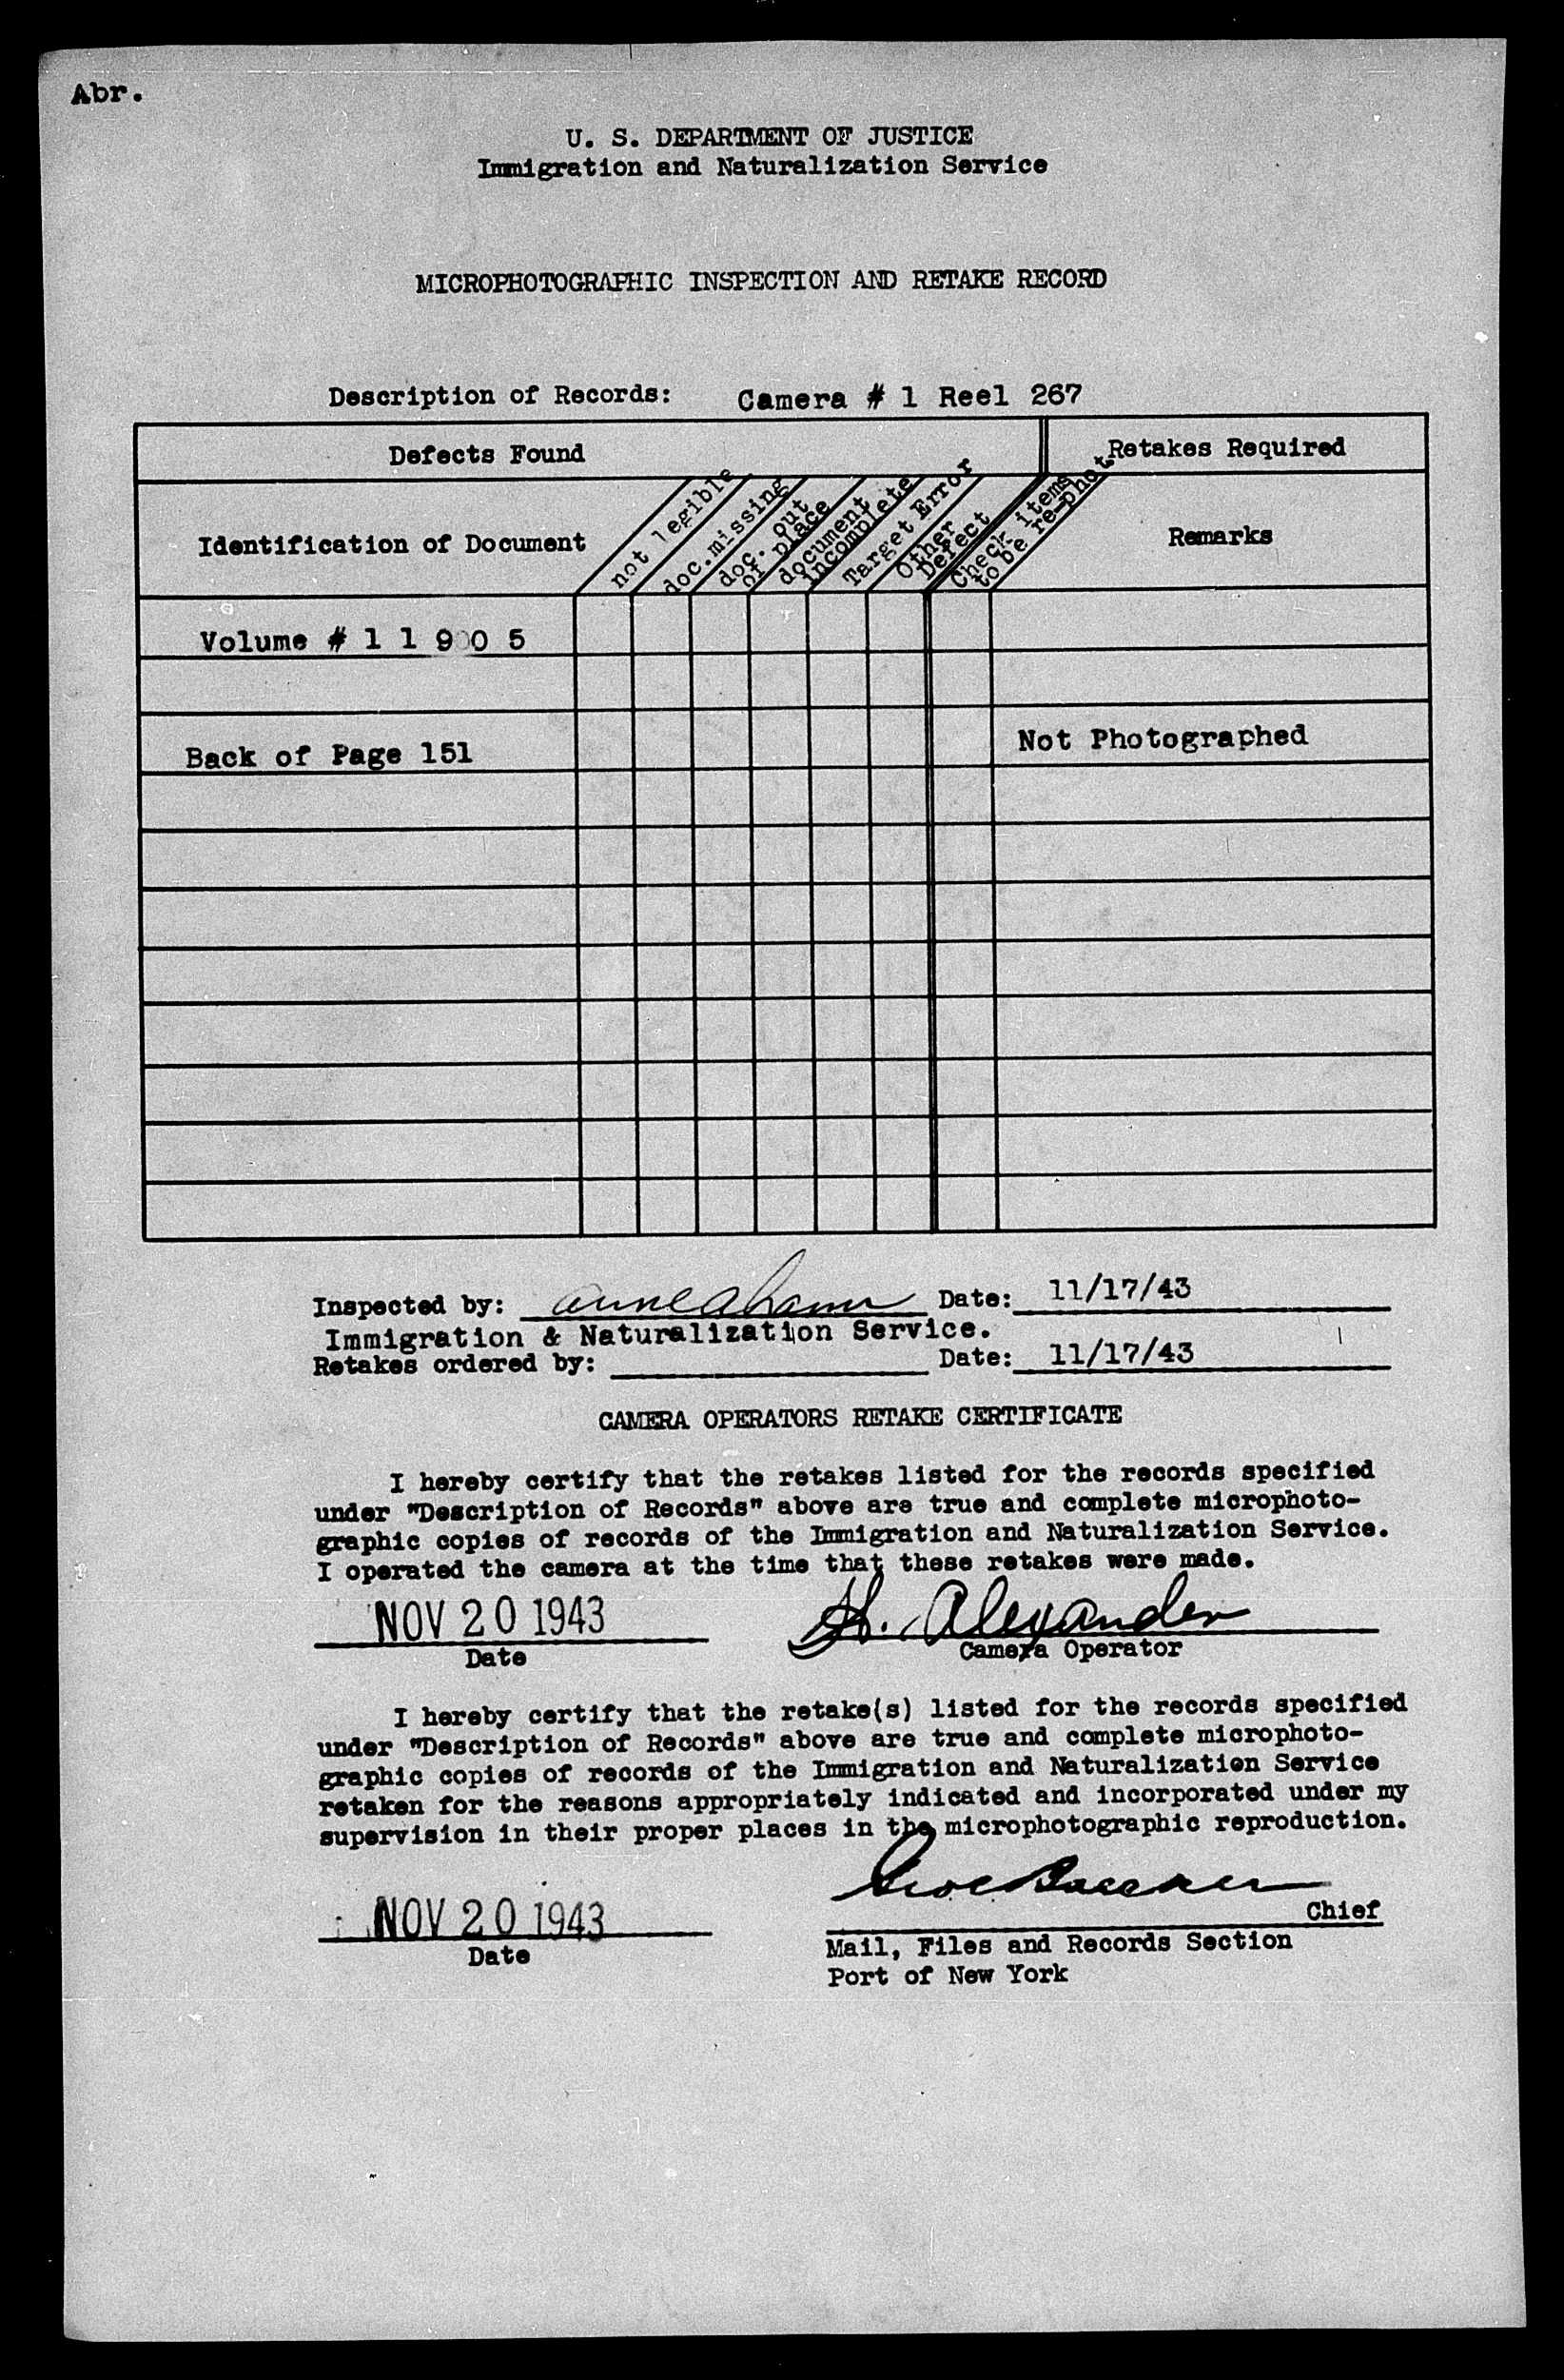 Abr.
U. S. DEPARTMENT OF JUSTICE
Immigration and Naturalization Service
MICROPHOTOGRAPHIC INSPECTION AND RETAKE RECORD
Description of Records: Camera # 1 Reel 267
Defects Found
Retakes Required
Identification of Document
not legible
doc.missing
doc. out
of place
document
incomplete
Target Error
Other
Defect
Check items
to be re-phot
Remarks
Volume # 1 1 9 0 5
Back of Page 151
Not Photographed
Inspected by: Date: 11/17/43
Immigration & Naturalization Service.
Retakes ordered by: Date: 11/17/43
CAMERA OPERATORS RETAKE CERTIFICATE
I hereby certify that the retakes listed for the records specified
under "Description of Records" above are true and complete microphoto-
graphic copies of records of the Immigration and Naturalization Service.
I operated the camera at the time that these retakes were made.
NOV 20 1943
H. Alexander
Date
Camera Operator
I hereby certify that the retake(s) listed for the records specified
under "Description of Records" above are true and complete microphoto-
graphic copies of records of the Immigration and Naturalization Service
retaken for the reasons appropriately indicated and incorporated under my
supervision in their proper places in the microphotographic reproduction.
NOV 20 1943
Chief
Date
Mail, Files and Records Section
Port of New York